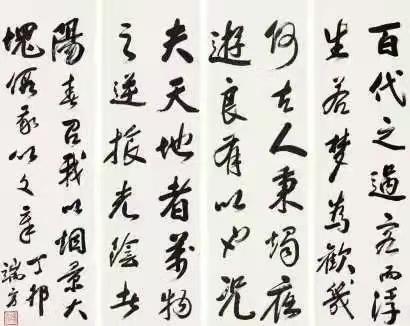 百代之過客而浮
生若夢為歡幾
何古人秉燭夜
遊良有以也況
夫天地者萬物
之逆旅光陰者
陽春召我以烟景大
塊假我以文章 丁卯
端方